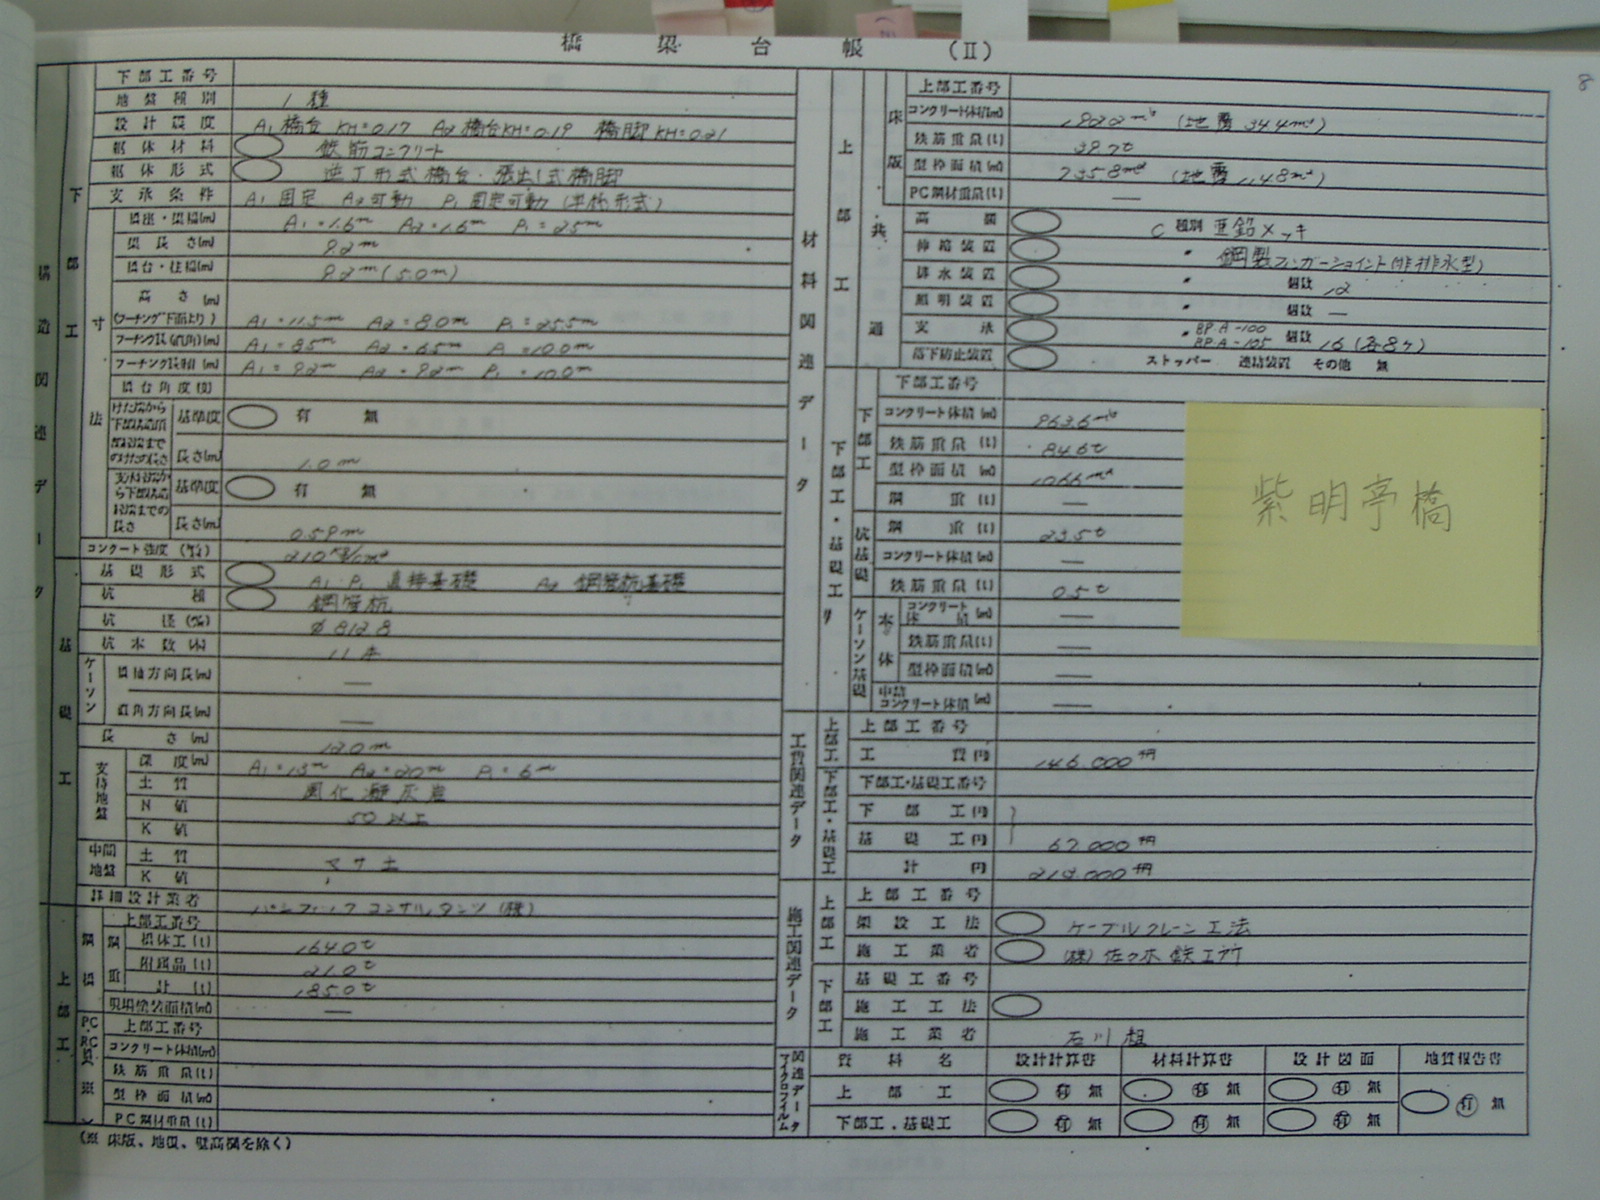 橋梁台帳 (II)
8
下部工番号
地盤種別 1種
設計震度 A1橋台 KH=0.17 A2橋台 KH=0.19 橋脚 KH=0.21
躯体材料 鉄筋コンクリート
躯体形式 逆T形式橋台・張出し式橋脚
支承条件 A1 固定 A2 可動 P1 固定可動
A1=1.6m A2=1.6m P1=2.5m
9.2m
9.2m (5.0m)
高さ(m)
(フーチング下面より) A1=11.5m A2=8.0m P1=25.5m
A1=8.5m A2=6.5m P1=10.0m
A1=9.2m A2=9.2m P1=10.0m
基準度 有 無
長さ(m) 1.0m
基準度 有 無
長さ(m) 0.59m
コンクート強度 210
基礎形式 A1・P1 直接基礎 A2 鋼管杭基礎
杭種 鋼管杭
杭径 φ812.8
杭本数(本) 11本
ケーソン
直角方向長(m) —
長さ(m) 12.0m
支持地盤
深度(m) A1=13m A2=20m P1=6m
土質 風化凝灰岩
N値 50以上
K値
中間地盤
土質 マサ土
K値
詳細設計業者 パシフィックコンサルタンツ(株)
上部工番号
164.0t
附属品(t) 21.0t
計(t) 185.0t
現場塗装面積(m²) —
上部工番号
コンクリート体積(m³)
鉄筋重量(t)
型枠面積(m²)
PC鋼材重量(t)
(※ 床版、地覆、壁高欄を除く)
構造関連データ
下部工
寸法
基礎工
上部工
材料関連データ
上部工
床版
上部工番号
鉄筋重量(t) 38.7t
型枠面積(m²) 735.8m²
PC鋼材重量(t) —
共通
高欄 C 種別 亜鉛メッキ
伸縮装置 〃 鋼製フィンガージョイント(非排水型)
排水装置 〃 個数 12
照明装置 〃 個数 —
支承 〃 BP.A-100 BP.A-105 個数 16 (各8ヶ)
落下防止装置 ストッパー 連結装置 その他 無
下部工・基礎工
下部工番号
コンクリート体積(m³) 963.6m³
鉄筋重量(t) 84.6t
型枠面積(m²) 1066m²
鋼重(t) —
杭基礎
鋼重(t) 23.5t
コンクリート体積(m³) —
鉄筋重量(t) 0.5t
ケーソン基礎
本体
コンクリート体積(m³) —
鉄筋重量(t) —
型枠面積(m²) —
中詰コンクリート体積(m³) —
紫明亭橋
工費関連データ
上部工番号
工費(円) 146.000千円
下部工・基礎工番号
下部工(円)
基礎工(円) 67.000千円
計 円
施工関連データ
上部工番号
架設工法 ケーブルクレーン工法
施工業者 (株)佐々木鉄工所
基礎工番号
施工工法
施工業者 石川組
関連データマイクロフィルム
資料名 設計計算書 材料計算書 設計図面 地質報告書
上部工 有 無 有 無 有 無
下部工・基礎工 有 無 有 無 有 無
有 無